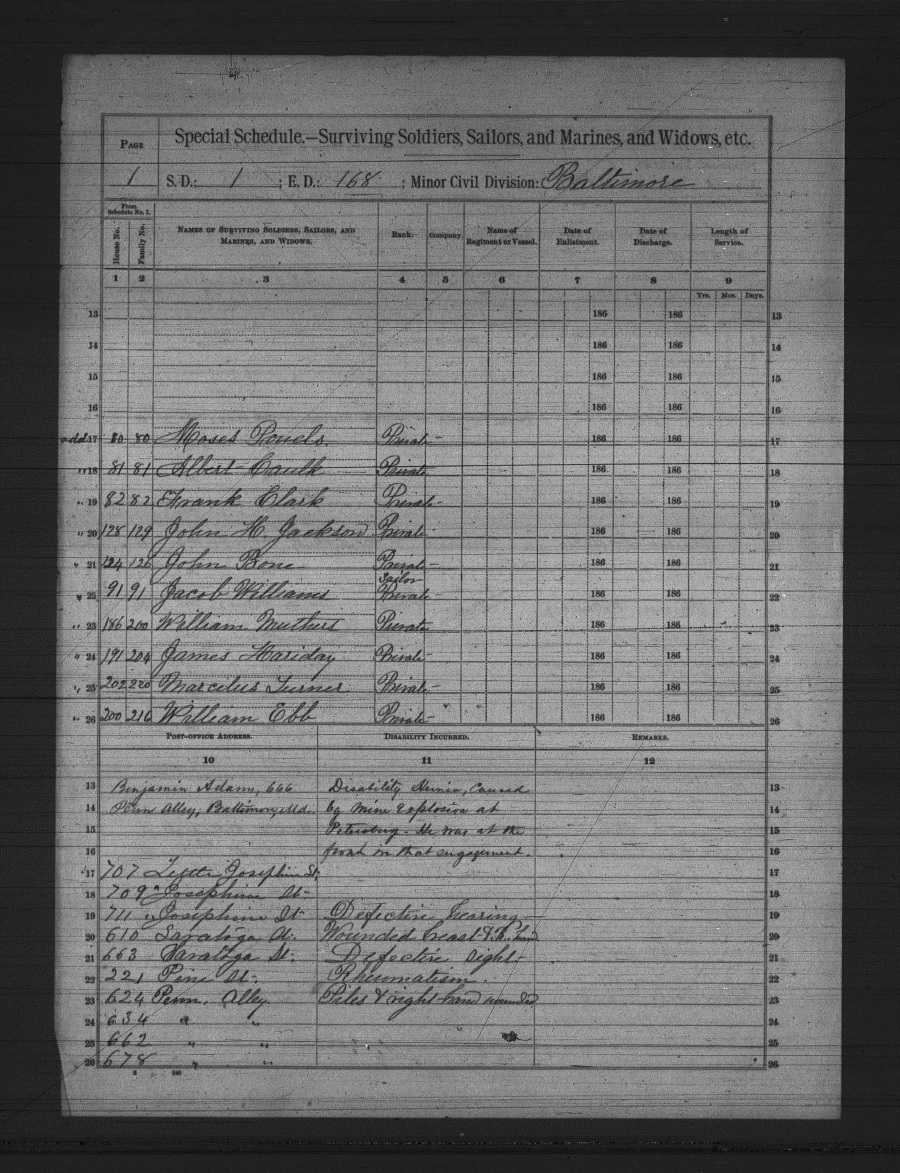 Page
Special Schedule.—Surviving Soldiers, Sailors, and Marines, and Widows, etc.
1 S.D.: 1 ; E.D.: 168 ; Minor Civil Division: Baltimore
From Schedule No. 1.
House No. Family No. Names of Surviving Soldiers, Sailors, and Marines, and Widows. Rank. Company. Name of Regiment or Vessel. Date of Enlistment. Date of Discharge. Length of Service.
1 2 3 4 5 6 7 8 9
Yrs. Mos. Days.
13 186 186 13
14 186 186 14
15 186 186 15
16 186 186 16
add 17 80 80 Moses Powels Private 186 186 17
" 18 81 81 Albert Caulk Private 186 186 18
" 19 82 82 Frank Clark Private 186 186 19
" 20 128 129 John H. Jackson Private 186 186 20
" 21 124 126 John Bone Private 186 186 21
Sailor
" 22 91 91 Jacob Williams Private 186 186 22
" 23 186 200 William Muthers Private 186 186 23
" 24 191 204 James Hariday Private 186 186 24
" 25 202 220 Marcelus Turner Private 186 186 25
" 26 200 216 William Ebb Private 186 186 26
Post-office Address. Disability Incurred. Remarks.
10 11 12
13 Binjamin Adams, 666 Disability Hernia, Caused 13
14 Penn Alley, Baltimore, Md. by mine Explosion at 14
15 Petersburg. He was at the 15
16 front in that engagement. 16
17 707 Josephine St. 17
18 709 " Josephine St 18
19 711 " Josephine St Defective hearing 19
20 610 Saratoga St. Wounded breast & R. hand 20
21 663 Saratoga St. Defective sight 21
22 221 Pine St Rheumatism. 22
23 624 Penn. Alley Piles & right hand wounded 23
24 634 " " 24
25 662 " " 25
26 678 " " 26